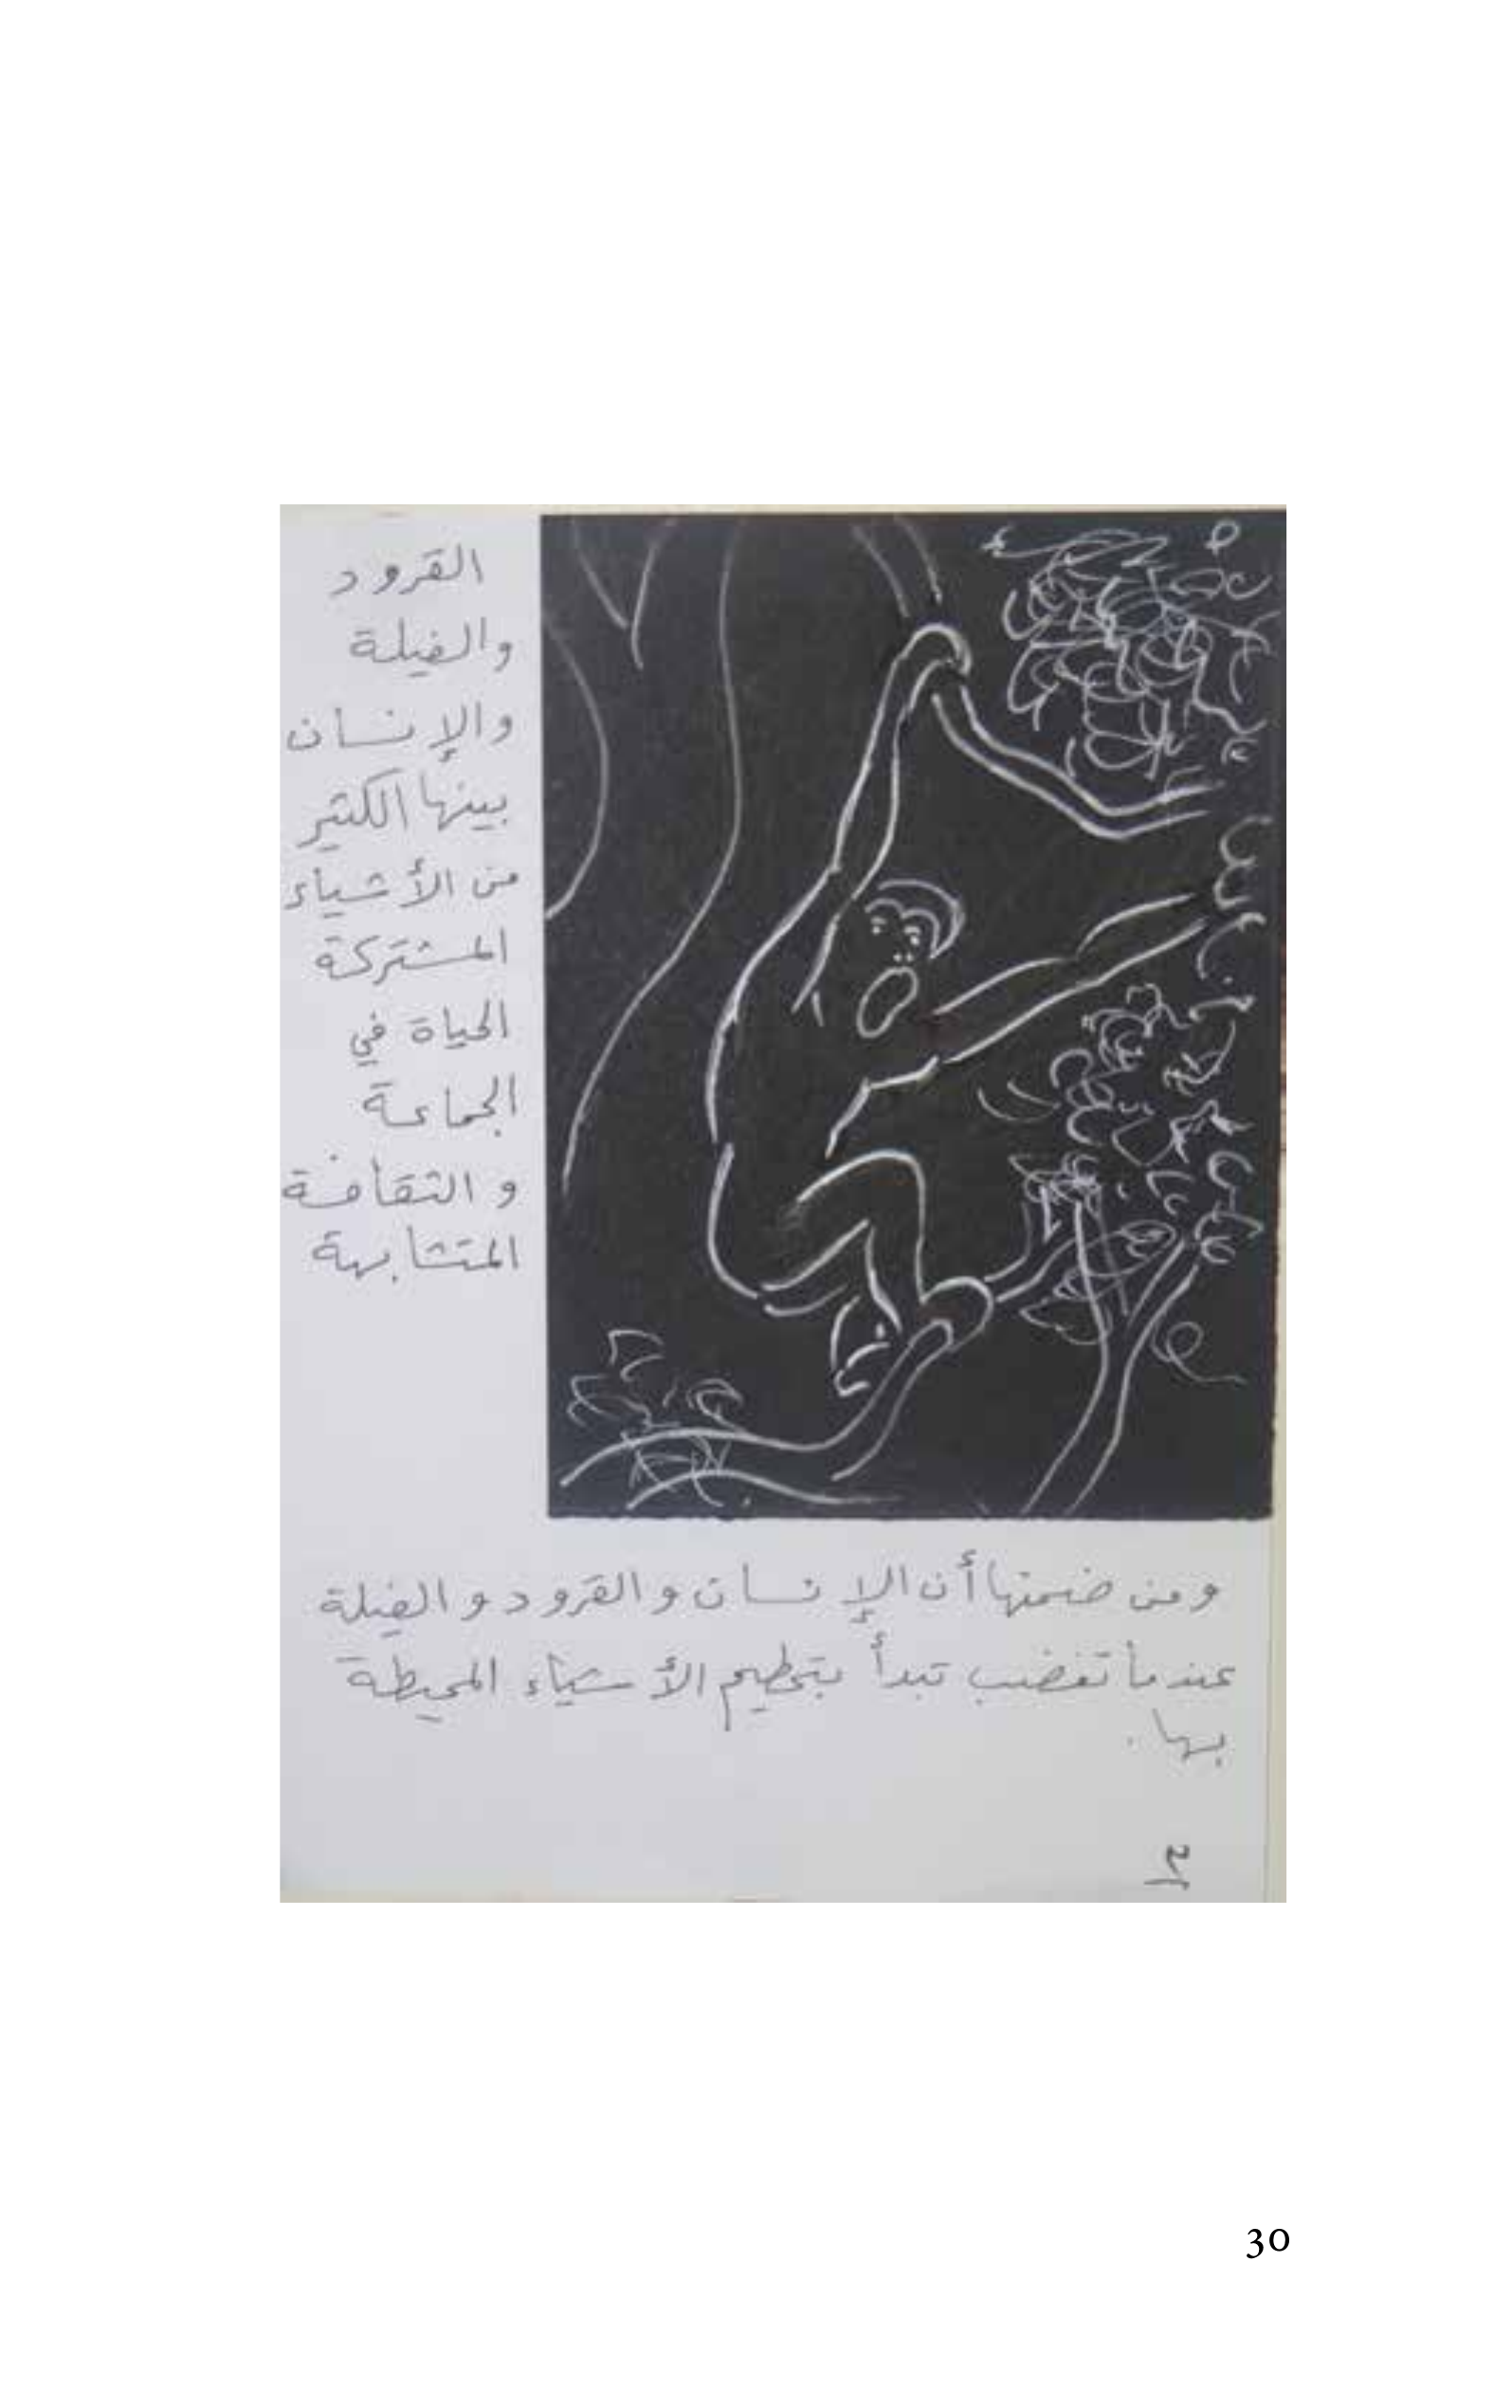 القرود
والفيلة
والإنسان
بينها الكثير
من الأشياء
المشتركة
الحياة في
الجماعة
والثقافة
المتشابهة
ومن ضمنها أن الإنسان والقرود والفيلة
عندما تغضب تبدأ بتحطيم الأشياء المحيطة
بها.
30